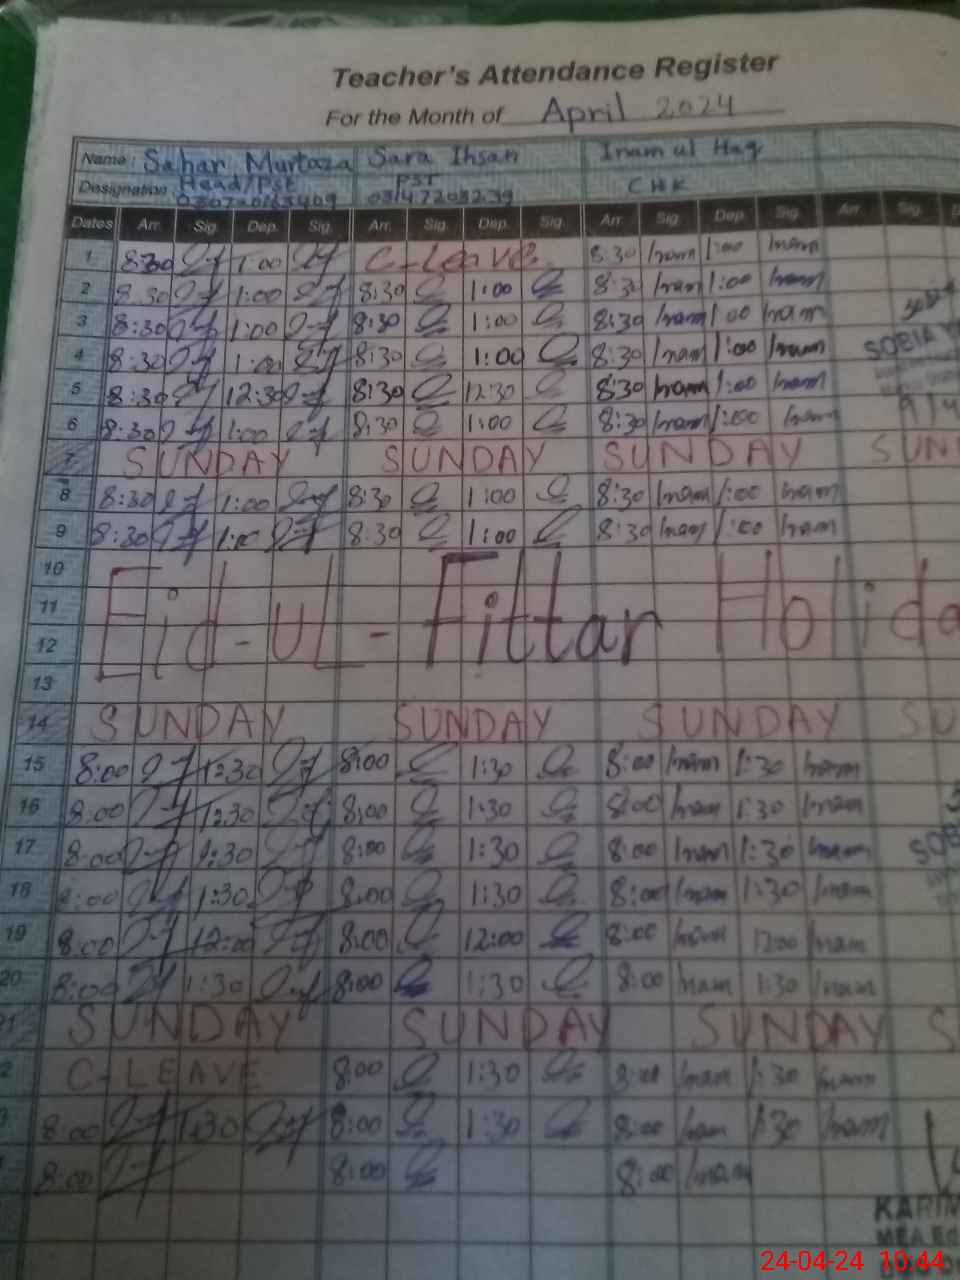 Teacher's Attendance Register
For the Month of April 2024
Name: Sahar Murtaza Sara Ihsan Inam ul Haq
Designation Head/Pst PST
Dates Arr. Sig. Dep. Sig. Arr. Sig. Dep. Sig. Arr. Sig. Dep. Sig. Arr. Sig.
1 8:30 1:00 C-Leave 8:30 Inam 1:00 Inam
2 8:30 1:00 8:30 1:00 8:30 Inam 1:00 Inam
3 8:30 1:00 8:30 1:00 8:30 Inam 1:00 Inam
4 8:30 1:00 8:30 1:00 8:30 Inam 1:00 Inam
SOBIA
5 8:30 12:30 8:30 12:30 8:30 Inam 1:00 Inam
6 8:30 1:00 8:30 1:00 8:30 Inam 1:00 Inam
7 SUNDAY SUNDAY SUNDAY SUN
8 8:30 1:00 8:30 1:00 8:30 Inam 1:00 Inam
9 8:30 1:00 8:30 1:00 8:30 Inam 1:00 Inam
10
11
Eid-ul-Fittar Holida
12
13
14 SUNDAY SUNDAY SUNDAY SU
15 8:00 1:30 8:00 1:30 8:00 Inam 1:30 Inam
16 8:00 1:30 8:00 1:30 8:00 Inam 1:30 Inam
17 8:00 1:30 8:00 1:30 8:00 Inam 1:30 Inam
18 8:00 1:30 8:00 1:30 8:00 Inam 1:30 Inam
19 8:00 12:00 8:00 12:00 8:00 Inam 12:00 Inam
20 8:00 1:30 8:00 1:30 8:00 Inam 1:30 Inam
21 SUNDAY SUNDAY SUNDAY S
2 C-LEAVE 8:00 1:30 8:00 Inam 1:30 Inam
8:00 1:30 8:00 1:30 8:00 Inam 1:30 Inam
8:00 8:00 8:00 Inam
KARIM
24-04-24 10:44